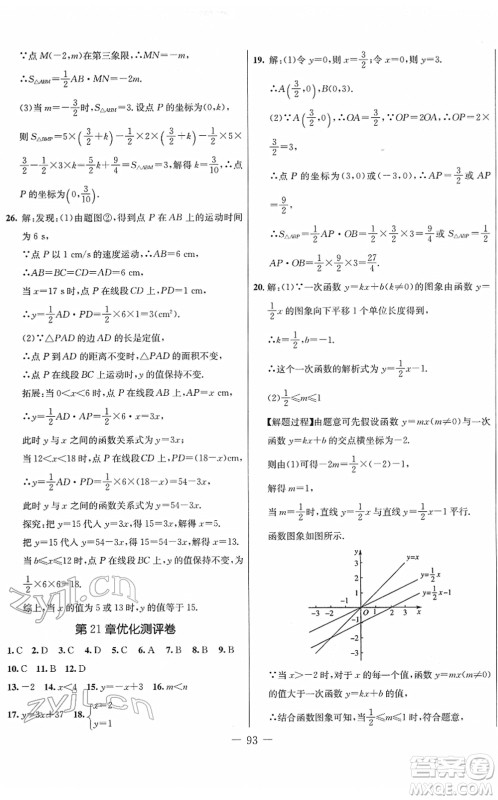 ∵点 M(-2,m)在第三象限,∴点 M 到 AB 的距离为
∴S△ABM=1/2AB·(-m)=
(3)当 m=-3/2 时,设点 P 的坐标为(0,k)
3/2-1/2×3×k=5/2k+9/4 ∵S△ABM=3 解得:k=3/10,∴点
P 的坐标为(0,3/10).
26. 解:发现:(1)由题图②,得到点 P 在 AB 上的运动时间
为 6 s,
∵点 P 以 1 cm/s 的速度运动,∴AB=6 cm,
∴AD=AB=BC=CD=6 cm,
当 x=17 s 时,点 P 在线段 CD 上,PD=1 cm,
∴y=1/2AD·PD=1/2×6×1=3(cm²)
(2)∵△PAD 的边 AD 不变,面积不变,
∴点 P 到 AD 的距离不变,
∴点 P 在线段 BC 上时,y 的值保持不变.
拓展:当 0<x<6 时,点 P 在线段 AB 上,AP=x cm,
∴y=1/2AD·AP=1/2×6·x=3x,
此时 y 与 x 之间的函数关系式为 y=3x.
当 12<x<18 时,点 P 在线段 CD 上,PD=(18-x)cm,
∴y=1/2AD·PD=1/2×6·(18-x)=54-3x,
此时 y 与 x 之间的函数关系式为 y=54-3x.
探究:把 y=15 代入 y=3x,得 15=3x,解得 x=5.
把 y=15 代入 y=54-3x,得 15=54-3x,解得 x=13.
当 6≤x≤12 时,点 P 在线段 BC 上,y 的值保持不变,为
1/2×6×6=18.
综上,当 x 的值为 5 或 13 时,y 的值等于 15.
第 21 章优化测评卷
1. C 2. D 3. C 4. D 5. C 6. A 7. B 8. B 9. C
10. C 11. B 12. D
13. -2 14. x<4 15. y=-3x 16. m<n
17. y=3x+37 18. {x=2
19. 解:(1)令 y=0,则 x=3/2;令 x=0,则 y=3.
∴A(3/2,0),B(0,3).
(2)∵A(3/2,0),∴OA=3/2,∵OP=2OA,∴OP=2×
3/2=3,
∴点 P 的坐标为(3,0)或(-3,0),∴AP=3/2或 AP=
9/2,
∴S△ABP=1/2AP·OB=1/2×3/2×3=9/4或 S△ABP=1/2
AP·OB=1/2×9/2×3=27/4.
20. 解:(1)∵一次函数 y=kx+b(k≠0)的图象由函数 y=
1/2x 的图象向下平移 1 个单位长度得到,
∴k=1/2,b=-1.
∴这个一次函数的解析式为 y=1/2x-1.
(2)1/2≤m≤1
【解题过程】由题意可先假设函数 y=mx(m≠0)与一次
函数 y=kx+b 的交点横坐标为-2,
则由(1)可得-2m=1/2×(-2)-1,解得 m=1.
当 m=1/2时,直线 y=1/2x 与直线 y=1/2x-1 平行.
函数图象如图所示.
y
y=x
y=1/2x
y=1/2x-1
x
∵当 x>-2 时,对于 x 的每一个值,函数 y=mx(m≠0)
的值大于一次函数 y=kx+b 的值,
∴结合函数图象可知,当 x>-2 时,若符合题意,
— 93 —